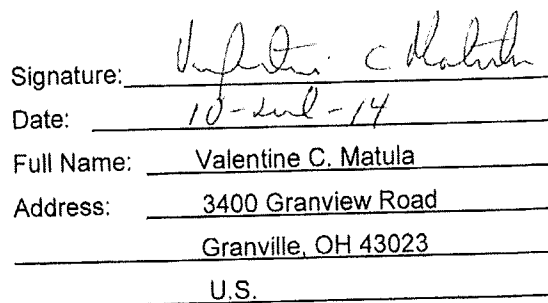 Signature: Valentine C Matula
Date: 10-Jul-14
Full Name: Valentine C. Matula
Address: 3400 Granview Road
Granville, OH 43023
U.S.